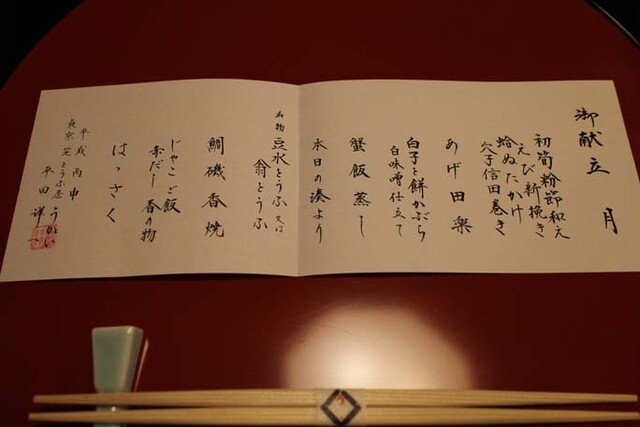 御献立　月
初筍粉節和え
えび新挽き
蛤ぬたかけ
穴子信田巻き
あげ田楽
白子と餅かぶら
白味噌仕立て
蟹飯蒸し
本日の湊より
名物 豆水とうふ 又は
翁とうふ
鯛磯香焼
じゃこご飯
赤だし 香の物
はっさく
平成 丙申
東京 芝 とうふ屋うかい
平田
う